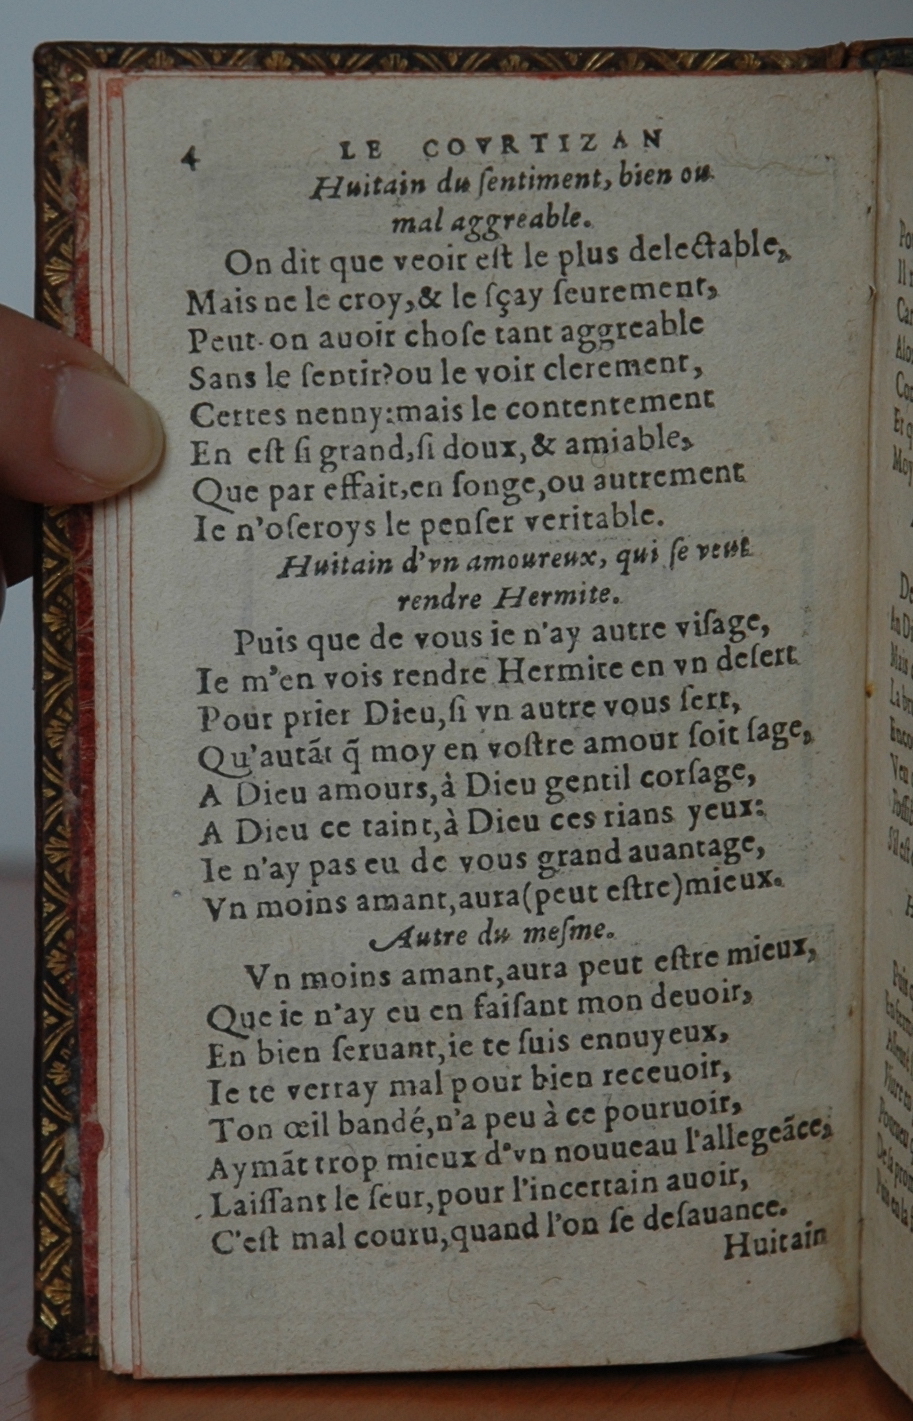 4 LE COVRTIZAN
Huitain du ſentiment, bien ou
mal aggreable.
On dit que veoir eſt le plus delectable,
Mais ne le croy,& le ſçay ſeurement,
Peut-on auoir choſe tant aggreable
Sans le ſentir?ou le voir clerement,
Certes nenny:mais le contentement
En eſt ſi grand,ſi doux,& amiable,
Que par effait,en ſonge,ou autrement
Ie n'oſeroys le penſer veritable.
Huitain d'vn amoureux, qui ſe veut
rendre Hermite.
Puis que de vous ie n'ay autre viſage,
Ie m'en vois rendre Hermite en vn deſert
Pour prier Dieu,ſi vn autre vous ſert,
Qu'autãt q̃ moy en voſtre amour ſoit ſage,
A Dieu amours,à Dieu gentil corſage,
A Dieu ce taint,à Dieu ces rians yeux:
Ie n'ay pas eu de vous grand auantage,
Vn moins amant,aura(peut eſtre)mieux.
Autre du meſme.
Vn moins amant,aura peut eſtre mieux,
Que ie n'ay eu en faiſant mon deuoir,
En bien ſeruant,ie te ſuis ennuyeux,
Ie te verray mal pour bien receuoir,
Ton œil bandé,n'a peu à ce pouruoir,
Aymãt trop mieux d'vn nouueau l'allegeãce,
Laiſſant le ſeur,pour l'incertain auoir,
C'eſt mal couru,quand l'on ſe deſauance.
Huitain